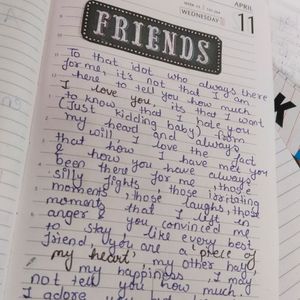 APRIL
WEDNESDAY
11
FRIENDS
To that idot who always there
for me, it's not that I am
here to tell you how much
I love you, its that I want
to know that I hate you
(Just kidding baby) from
my head and always
will I love the fact
that how I have met you
& how you have always
been there for me, those
silly fights, those irritating
moments, those laughs, those
moments that I left in
anger & you convinced me
to stay, like every best
friend you are a piece of
my heart, my other half,
my happiness, I may
not tell you how much
I adore you